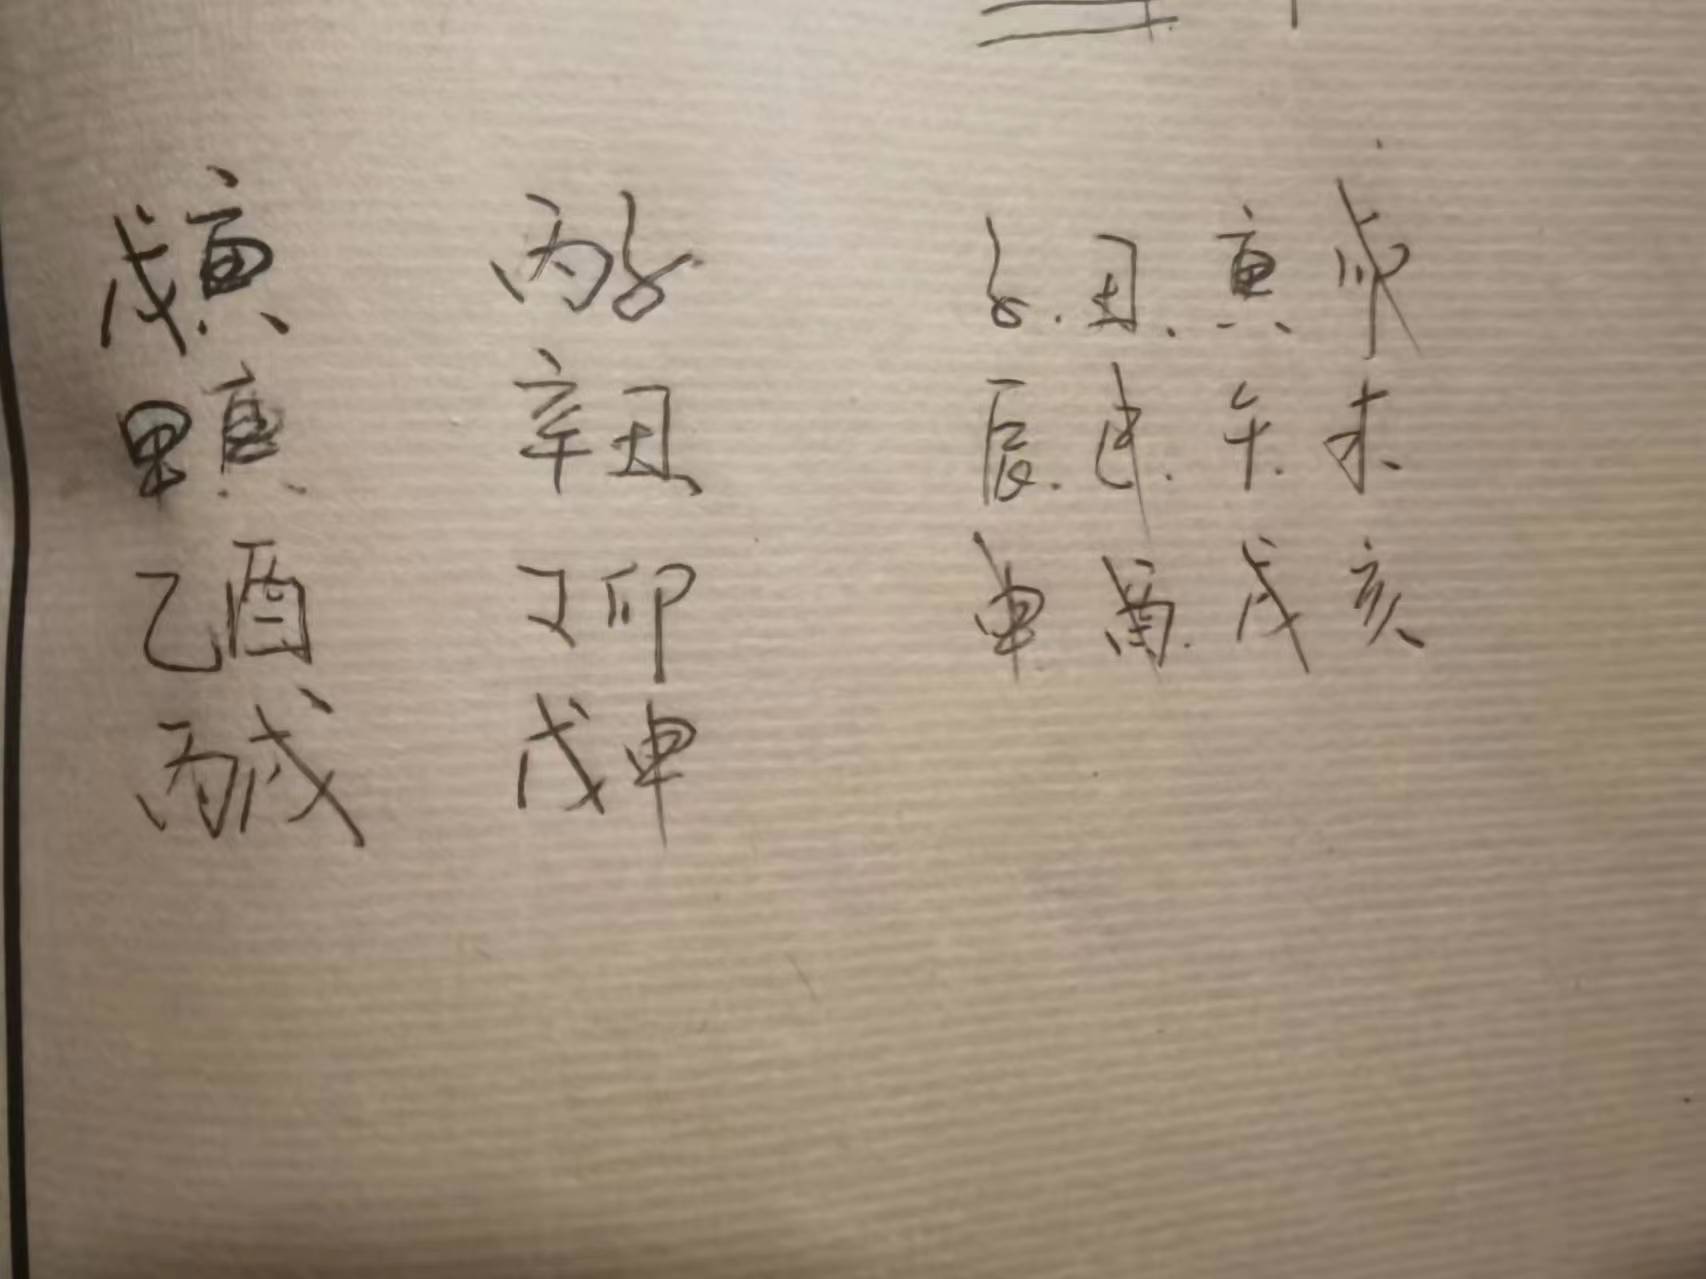 戊寅 丙子 子.丑.寅卯
甲寅 辛丑 辰.巳.午.未
乙酉 丁卯 申酉.戌亥
丙戌 戊申